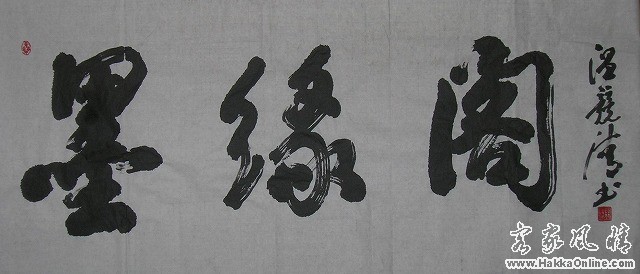 墨缘阁
温競书
客家风情
www.HakkaOnline.com